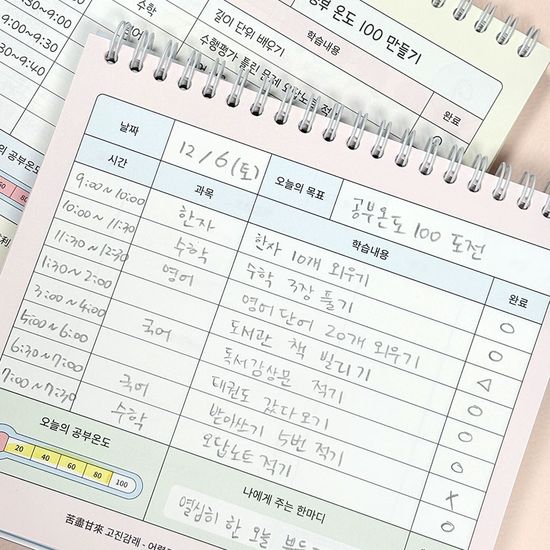 9:00~9:30
9:30~9:40
수학
영어
공부 온도 100 만들기
학습내용
길이 단위 배우기
수행평가 틀린 문제
완료
날짜
12/6(토)
오늘의 목표
공부온도 100 도전
시간
과목
학습내용
완료
9:00~10:00
한자
한자 10개 외우기
○
10:00~11:30
수학
수학 3장 풀기
○
11:30~12:30
영어
영어 단어 20개 외우기
△
1:30~2:00
도서관 책 빌리기
○
3:00~4:00
국어
독서감상문 적기
○
5:00~6:00
태권도 갔다오기
○
6:30~7:00
국어
받아쓰기 5번 적기
×
7:00~7:30
수학
오답노트 적기
○
오늘의 공부온도
20 40 60 80 100
나에게 주는 한마디
열심히 한 오늘
苦盡甘來 고진감래 -